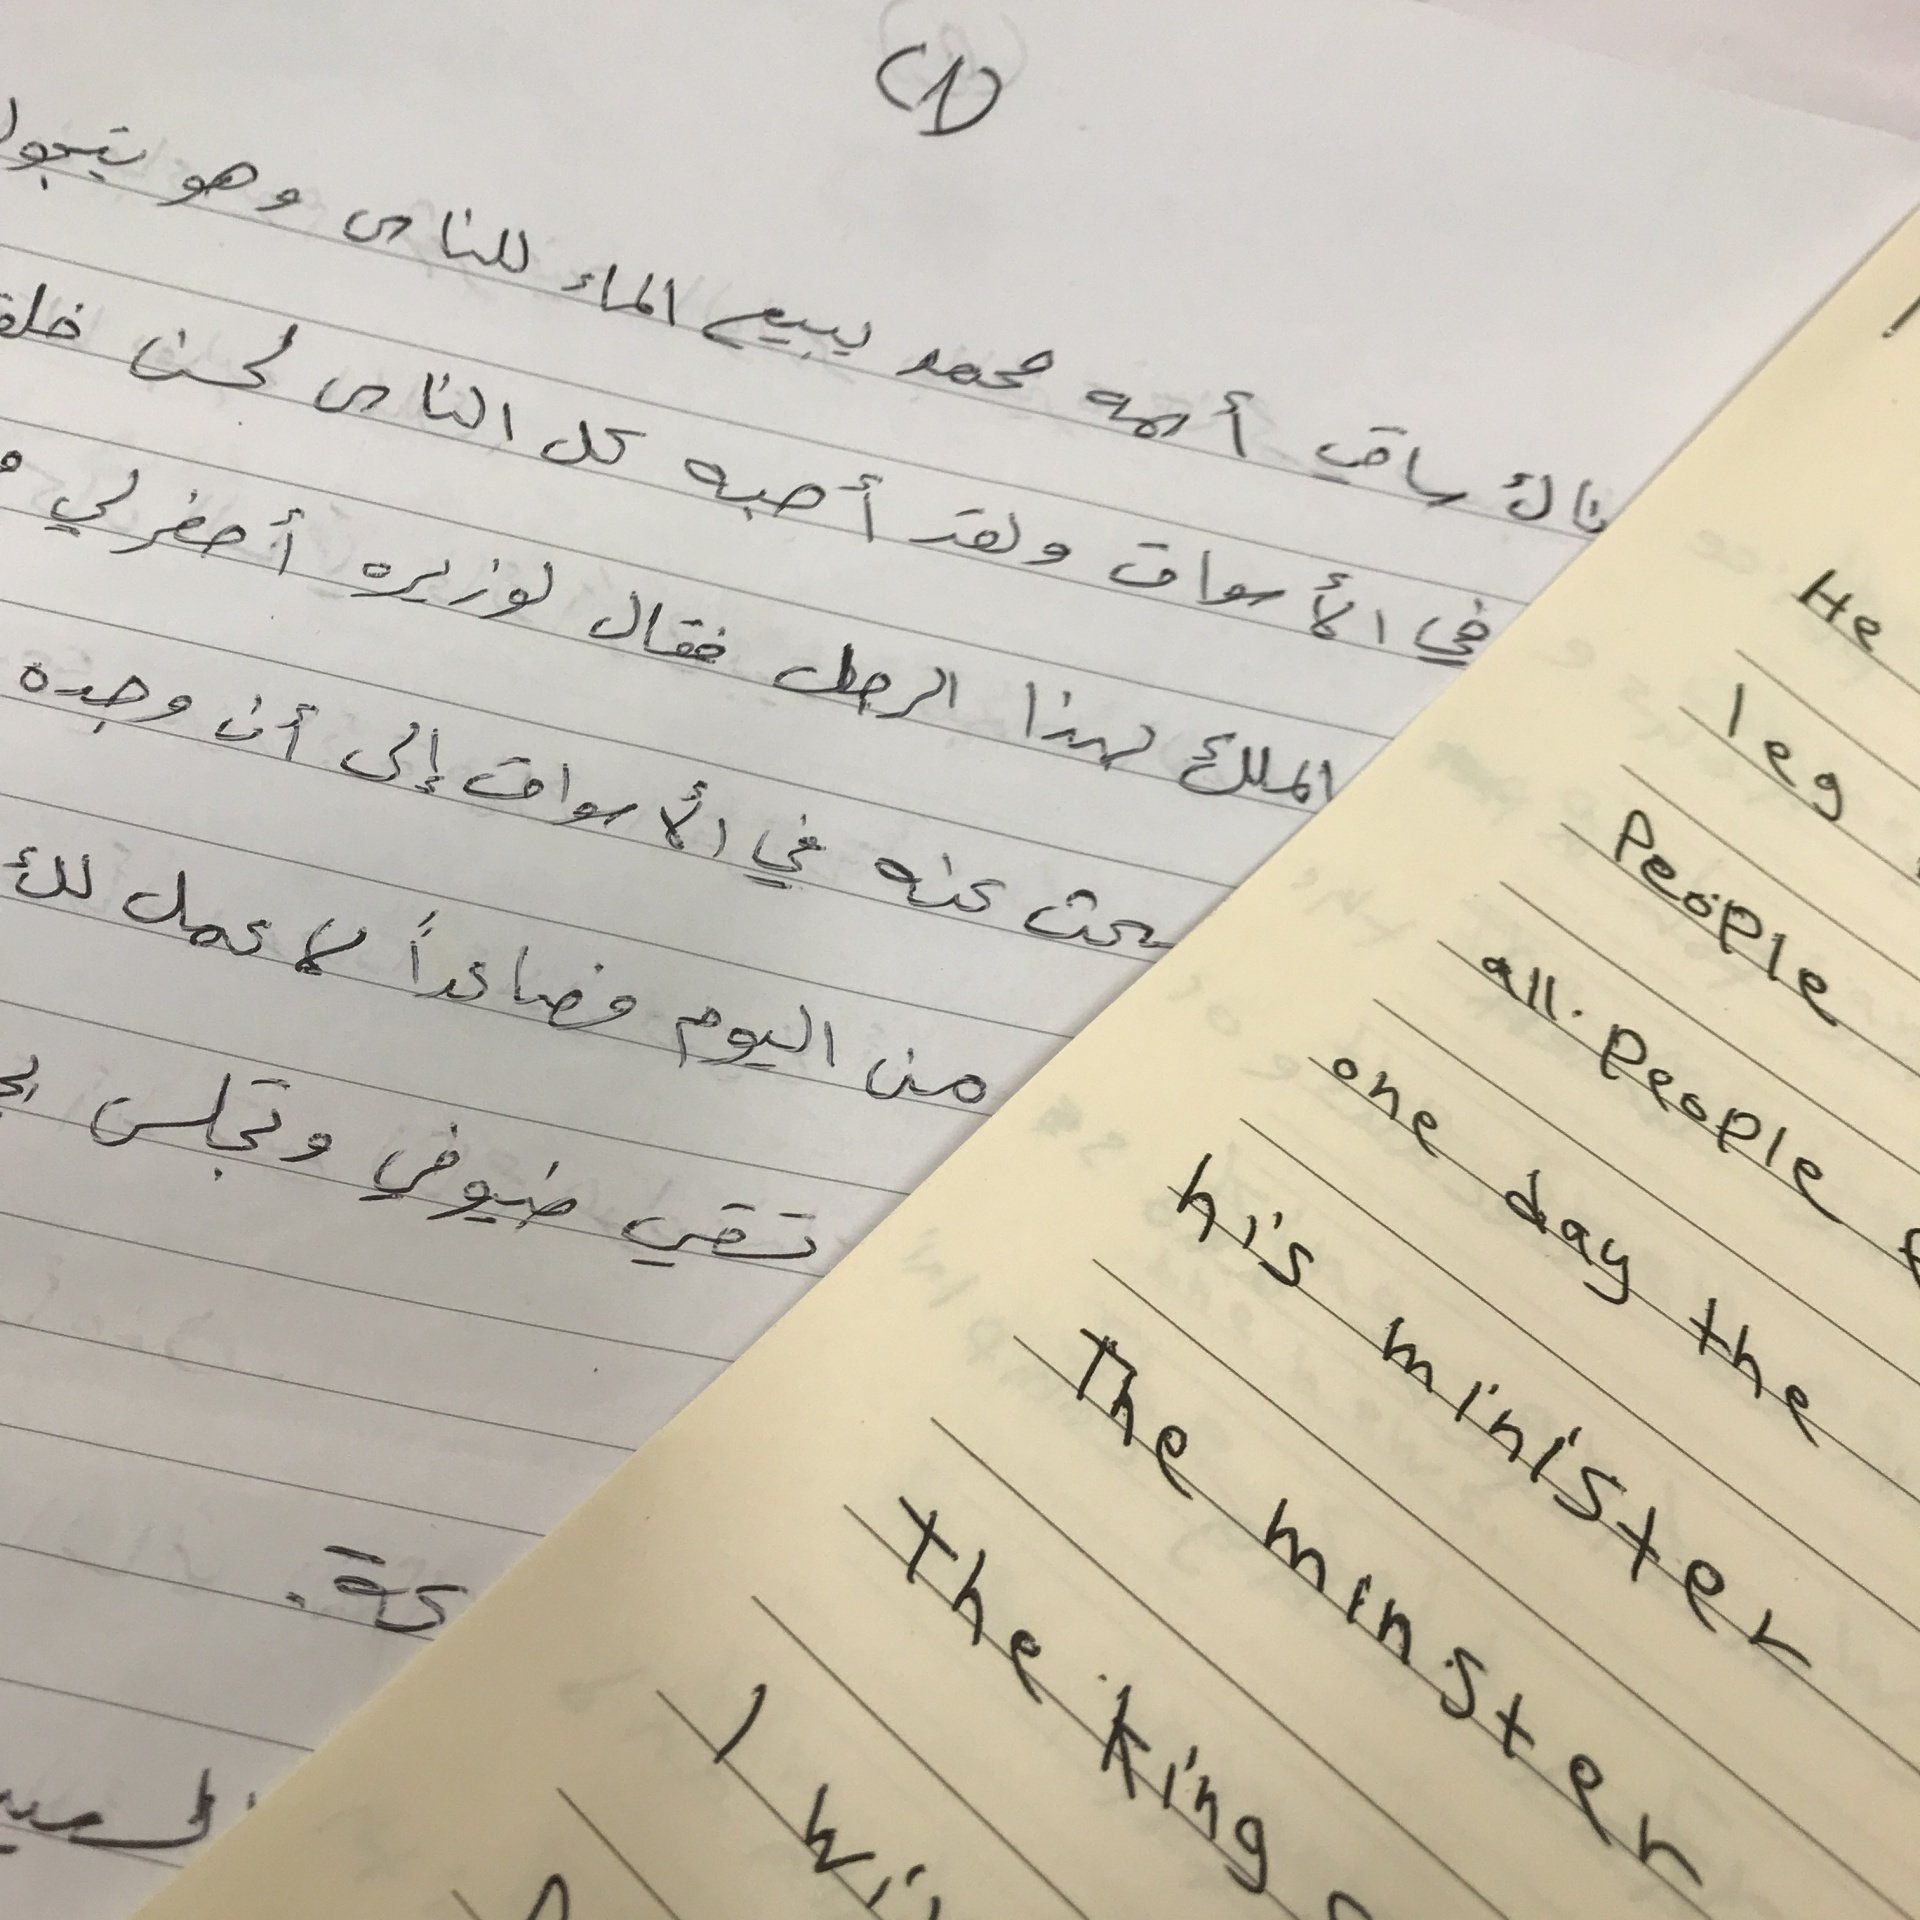 (1)
ناك ساقي أسمه محمد يبيع الماء للناس وهو يتجول
في الأسواق ولقد أحبه كل الناس لحسن
الملك لهذا الرجل فقال لوزيره أحضر لي
بحث عنه في الأسواق إلى أن وجده
من اليوم فصاعداً لا عمل لك
تسقي ضيوفي وتجلس
He
leg
People
all. People
one day the
his minister
The minster
the king
I wi